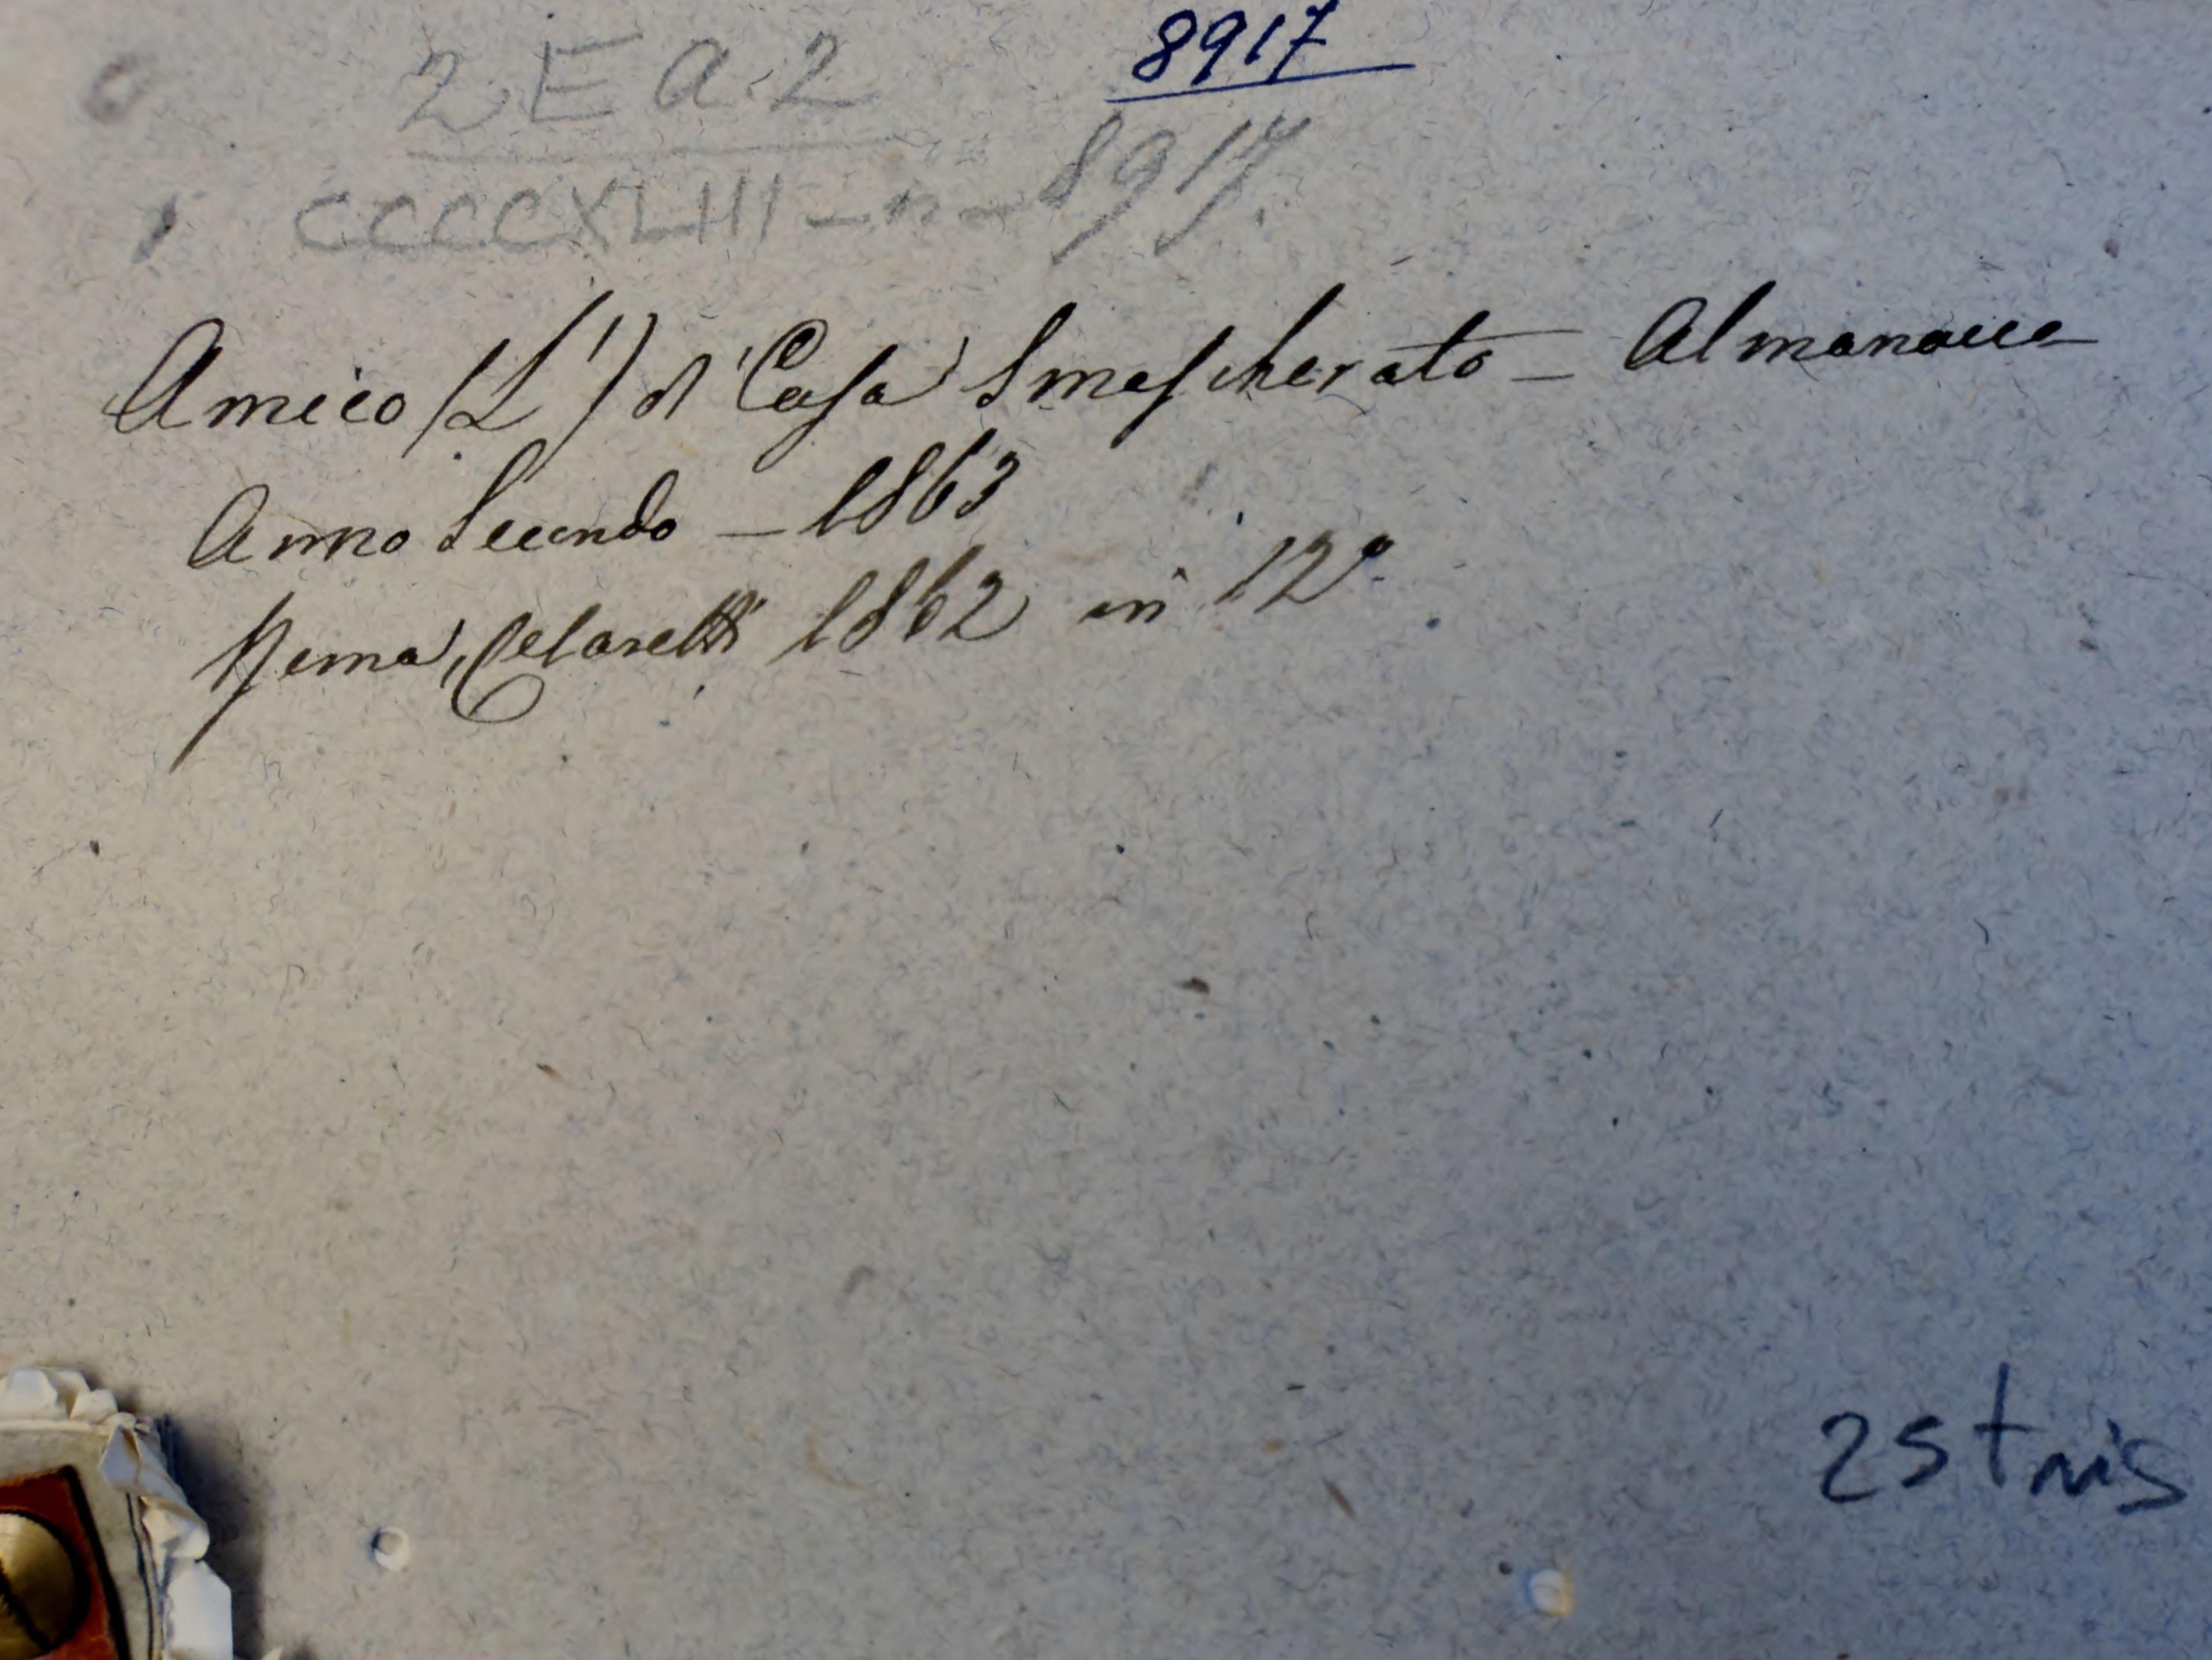 8917
2 E a. 2
CCCCXLIII - n - 8917.
Amico (L') di Casa Smascherato - Almanacco
Anno Secondo - 1863
Roma, Cetaretti 1862 in 12º
25 tris